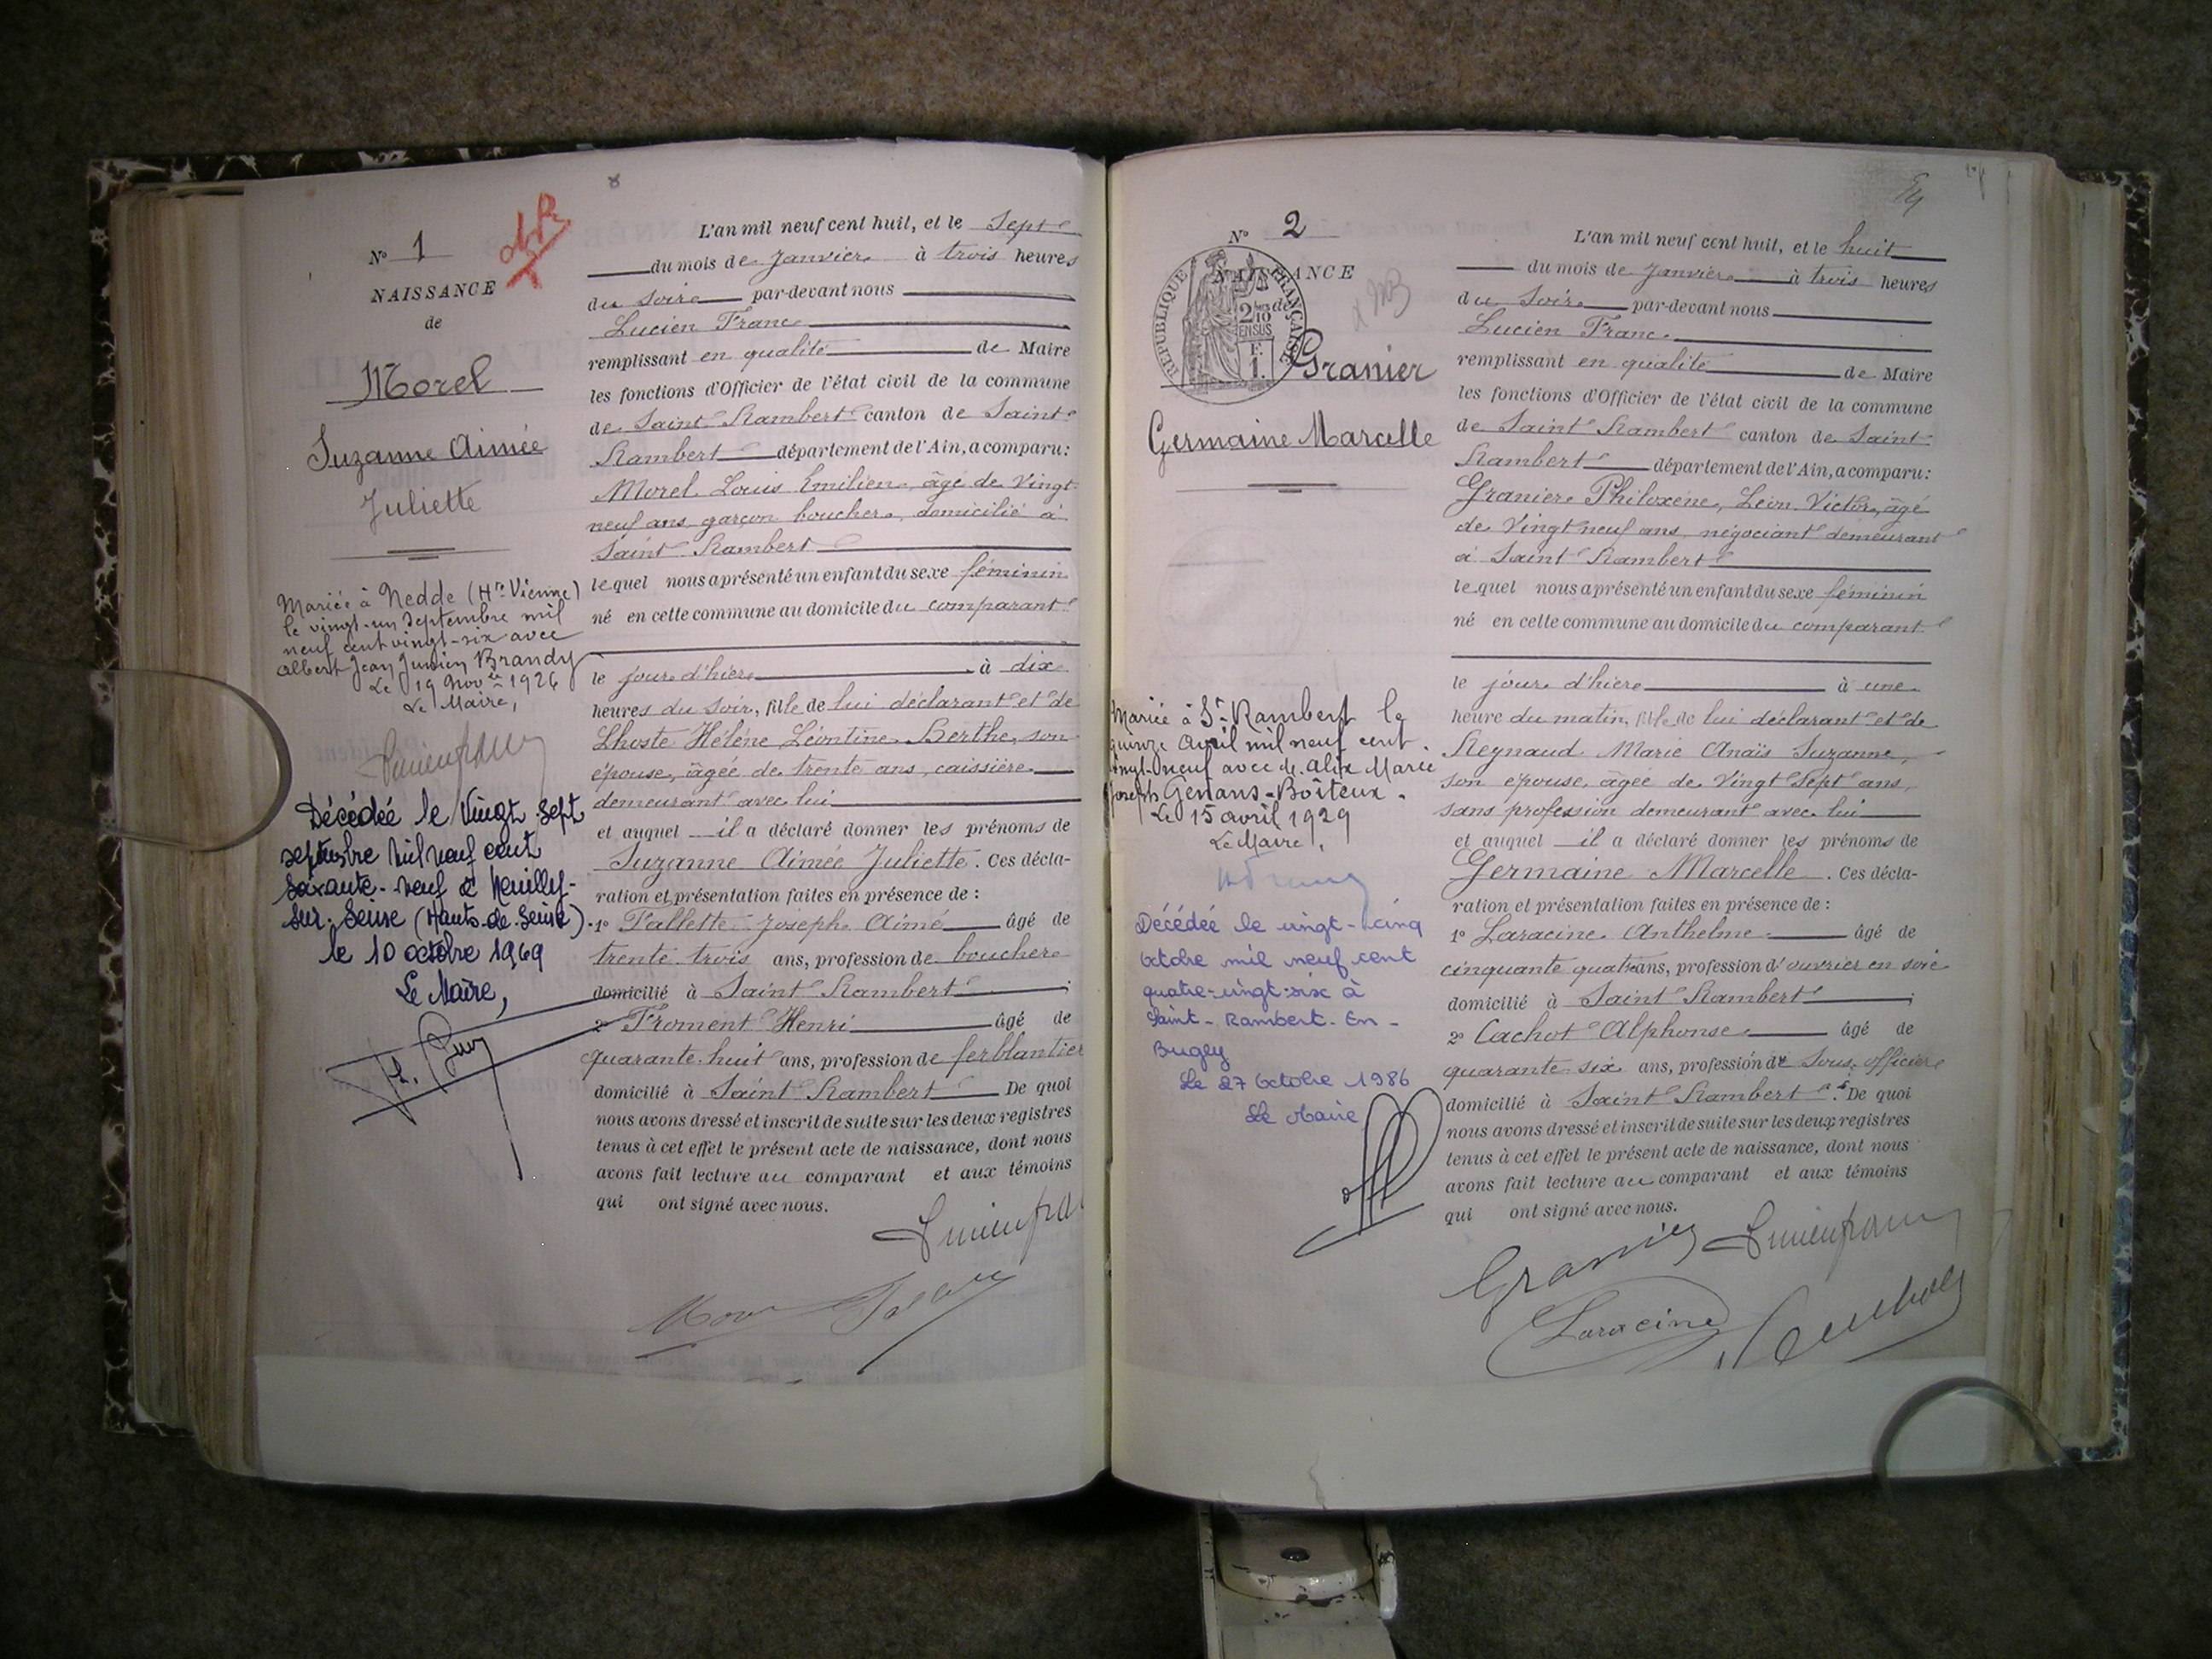 N° 1
NAISSANCE
de
Morel
Suzanne Aimée
Juliette
Mariée à Nedde (Hte-Vienne)
le vingt-un septembre mil
neuf cent vingt-six avec
Albert Jean Brandy
Le 19 Novbre 1926
Le Maire,
Lucien franc
Décédée le Vingt-Sept
septembre mil neuf cent
soixante-neuf à Neuilly-
sur-Seine (Hauts-de-Seine).
le 10 octobre 1969
Le Maire,
L'an mil neuf cent huit, et le Sept
du mois de Janvier à trois heures
du soir par-devant nous
Lucien Franc
remplissant en qualité de Maire
les fonctions d'Officier de l'état civil de la commune
de Saint Rambert canton de Saint
Rambert département de l'Ain, a comparu:
Morel Louis Emilien, âgé de Vingt
neuf ans, garçon boucher, domicilié à
Saint Rambert
lequel nous a présenté un enfant du sexe féminin
né en cette commune au domicile du comparant
le jour d'hier à dix
heures du soir, fille de lui déclarant et de
Lhoste Hélène Léontine Berthe, son
épouse, âgée de trente ans, caissière
demeurant avec lui
et auquel il a déclaré donner les prénoms de
Suzanne Aimée Juliette. Ces décla-
ration et présentation faites en présence de :
1° Pallette Joseph Aimé âgé de
trente trois ans, profession de boucher
domicilié à Saint Rambert ;
2° Froment Henri âgé de
quarante huit ans, profession de ferblantier
domicilié à Saint Rambert De quoi
nous avons dressé et inscrit de suite sur les deux registres
tenus à cet effet le présent acte de naissance, dont nous
avons fait lecture au comparant et aux témoins
qui ont signé avec nous.
N° 2
NAISSANCE
de
RÉPUBLIQUE FRANÇAISE
2/10 EN SUS
F.
1.
Granier
Germaine Marcelle
Mariée à St-Rambert le
quinze Avril mil neuf cent
vingt-neuf avec Alix Marie
Joseph Genans-Boiteux.
Le 15 avril 1929
Le Maire,
Décédée le vingt-cinq
Octobre mil neuf cent
quatre-vingt-six à
Saint-Rambert-En-
Bugey
Le 27 Octobre 1986
Le Maire
L'an mil neuf cent huit, et le huit
du mois de Janvier à trois heures
du Soir par-devant nous
Lucien Franc
remplissant en qualité de Maire
les fonctions d'Officier de l'état civil de la commune
de Saint Rambert canton de Saint
Rambert département de l'Ain, a comparu:
Granier Philoxène, Léon Victor, âgé
de Vingt neuf ans, négociant demeurant
à Saint Rambert
lequel nous a présenté un enfant du sexe féminin
né en cette commune au domicile du comparant
le jour d'hier à une
heure du matin, fille de lui déclarant et de
Reynaud Marie Anaïs Suzanne,
son épouse, âgée de Vingt Sept ans,
sans profession demeurant avec lui
et auquel il a déclaré donner les prénoms de
Germaine Marcelle. Ces décla-
ration et présentation faites en présence de :
1° Laracine Anthelme âgé de
cinquante quatre ans, profession d'ouvrier en soie
domicilié à Saint Rambert ;
2° Cachot Alphonse âgé de
quarante six ans, profession de Sous-officier
domicilié à Saint Rambert. De quoi
nous avons dressé et inscrit de suite sur les deux registres
tenus à cet effet le présent acte de naissance, dont nous
avons fait lecture au comparant et aux témoins
qui ont signé avec nous.
Granier Lucien franc
Laracine